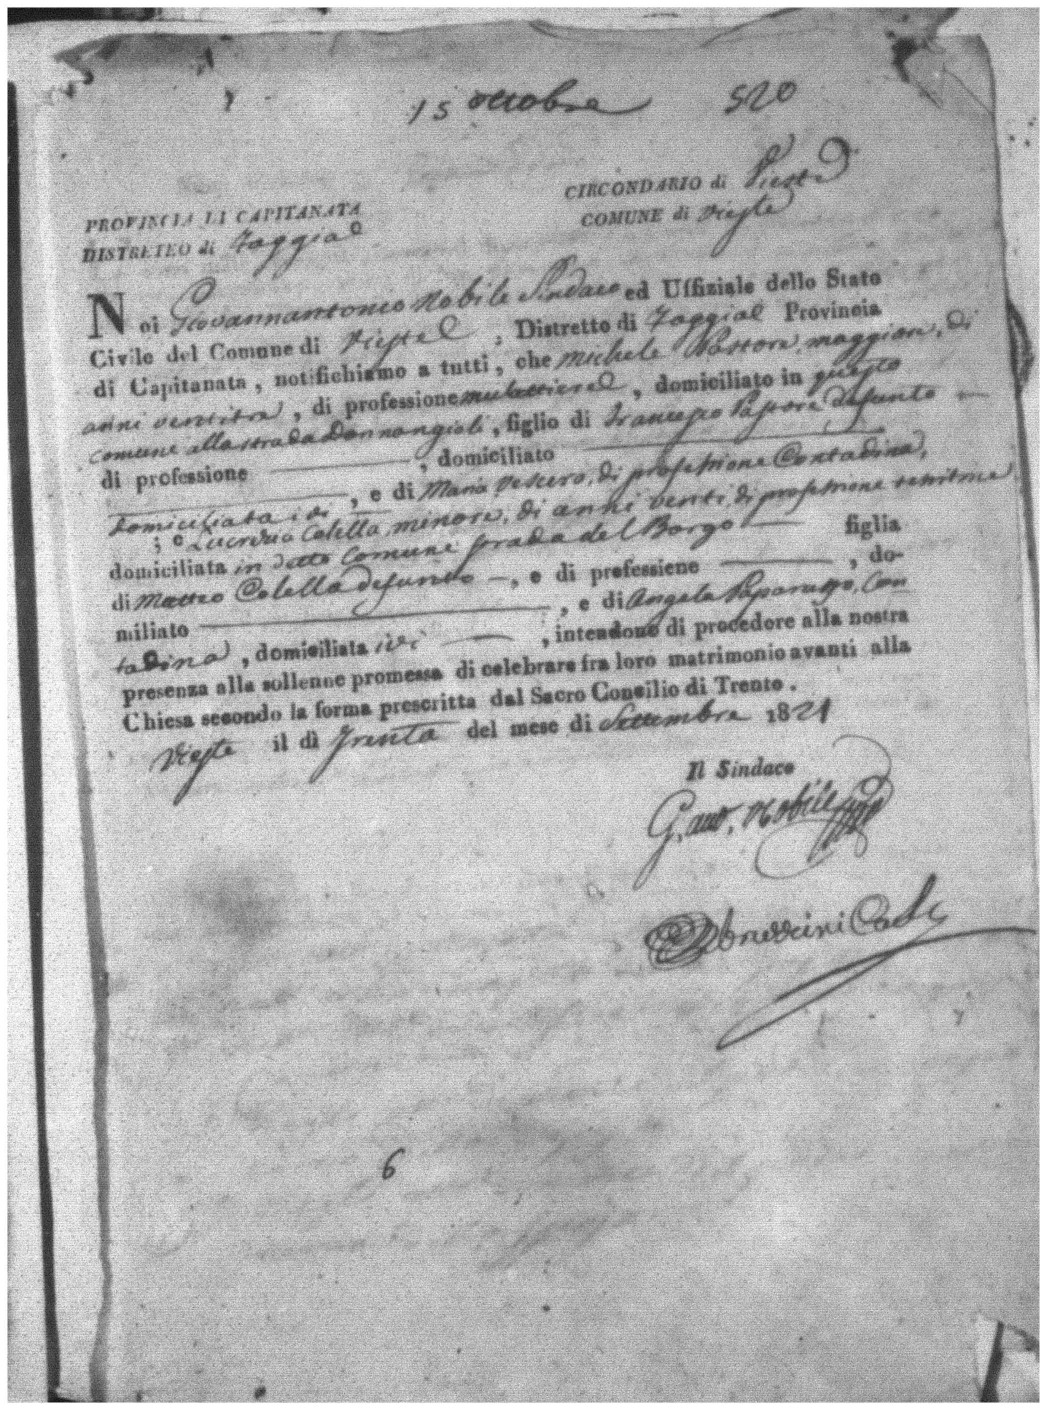 15 ottobre 520
CIRCONDARIO di Vieste
PROVINCIA DI CAPITANATA
COMUNE di Vieste
DISTRETTO di Foggia
Noi Giovannantonio Nobile Sindaco ed Uffiziale dello Stato
Civile del Comune di Vieste, Distretto di Foggia Provincia
di Capitanata, notifichiamo a tutti, che Michele Pastore maggiore, di
anni ventitre, di professione mulattiere, domiciliato in questo
comune alla strada Donnangioli, figlio di Francesco Pastore defunto
di professione , domiciliato
, e di Maria Vescera, di professione Contadina,
domiciliata ivi
; e Lucrezia Colella minore, di anni venti, di professione
domiciliata in detto Comune strada del Borgo figlia
di Matteo Colella defunto, e di professione , do-
miliato , e di Angela Paparusso, Con
tadina, domiciliata ivi , intendono di procedere alla nostra
presenza alla sollenne promessa di celebrare fra loro matrimonio avanti alla
Chiesa secondo la forma prescritta dal Sacro Concilio di Trento.
Vieste il dì Trenta del mese di Settembre 1821
Il Sindaco
G. anto. Nobile
Abruzzini
6